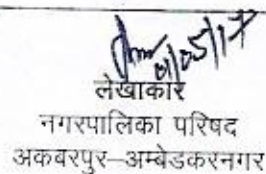 01/05/17
लेखाकार
नगरपालिका परिषद
अकबरपुर–अम्बेडकरनगर